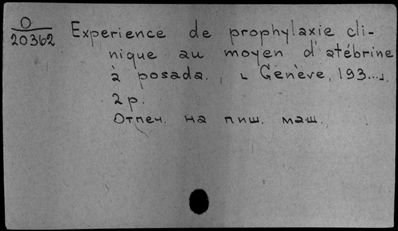 O
20362
Experience de prophylaxie cli-
nique au moyen d'atébrine
à posada. Genève, 193...
2 p.
Отпеч. на пиш. маш.